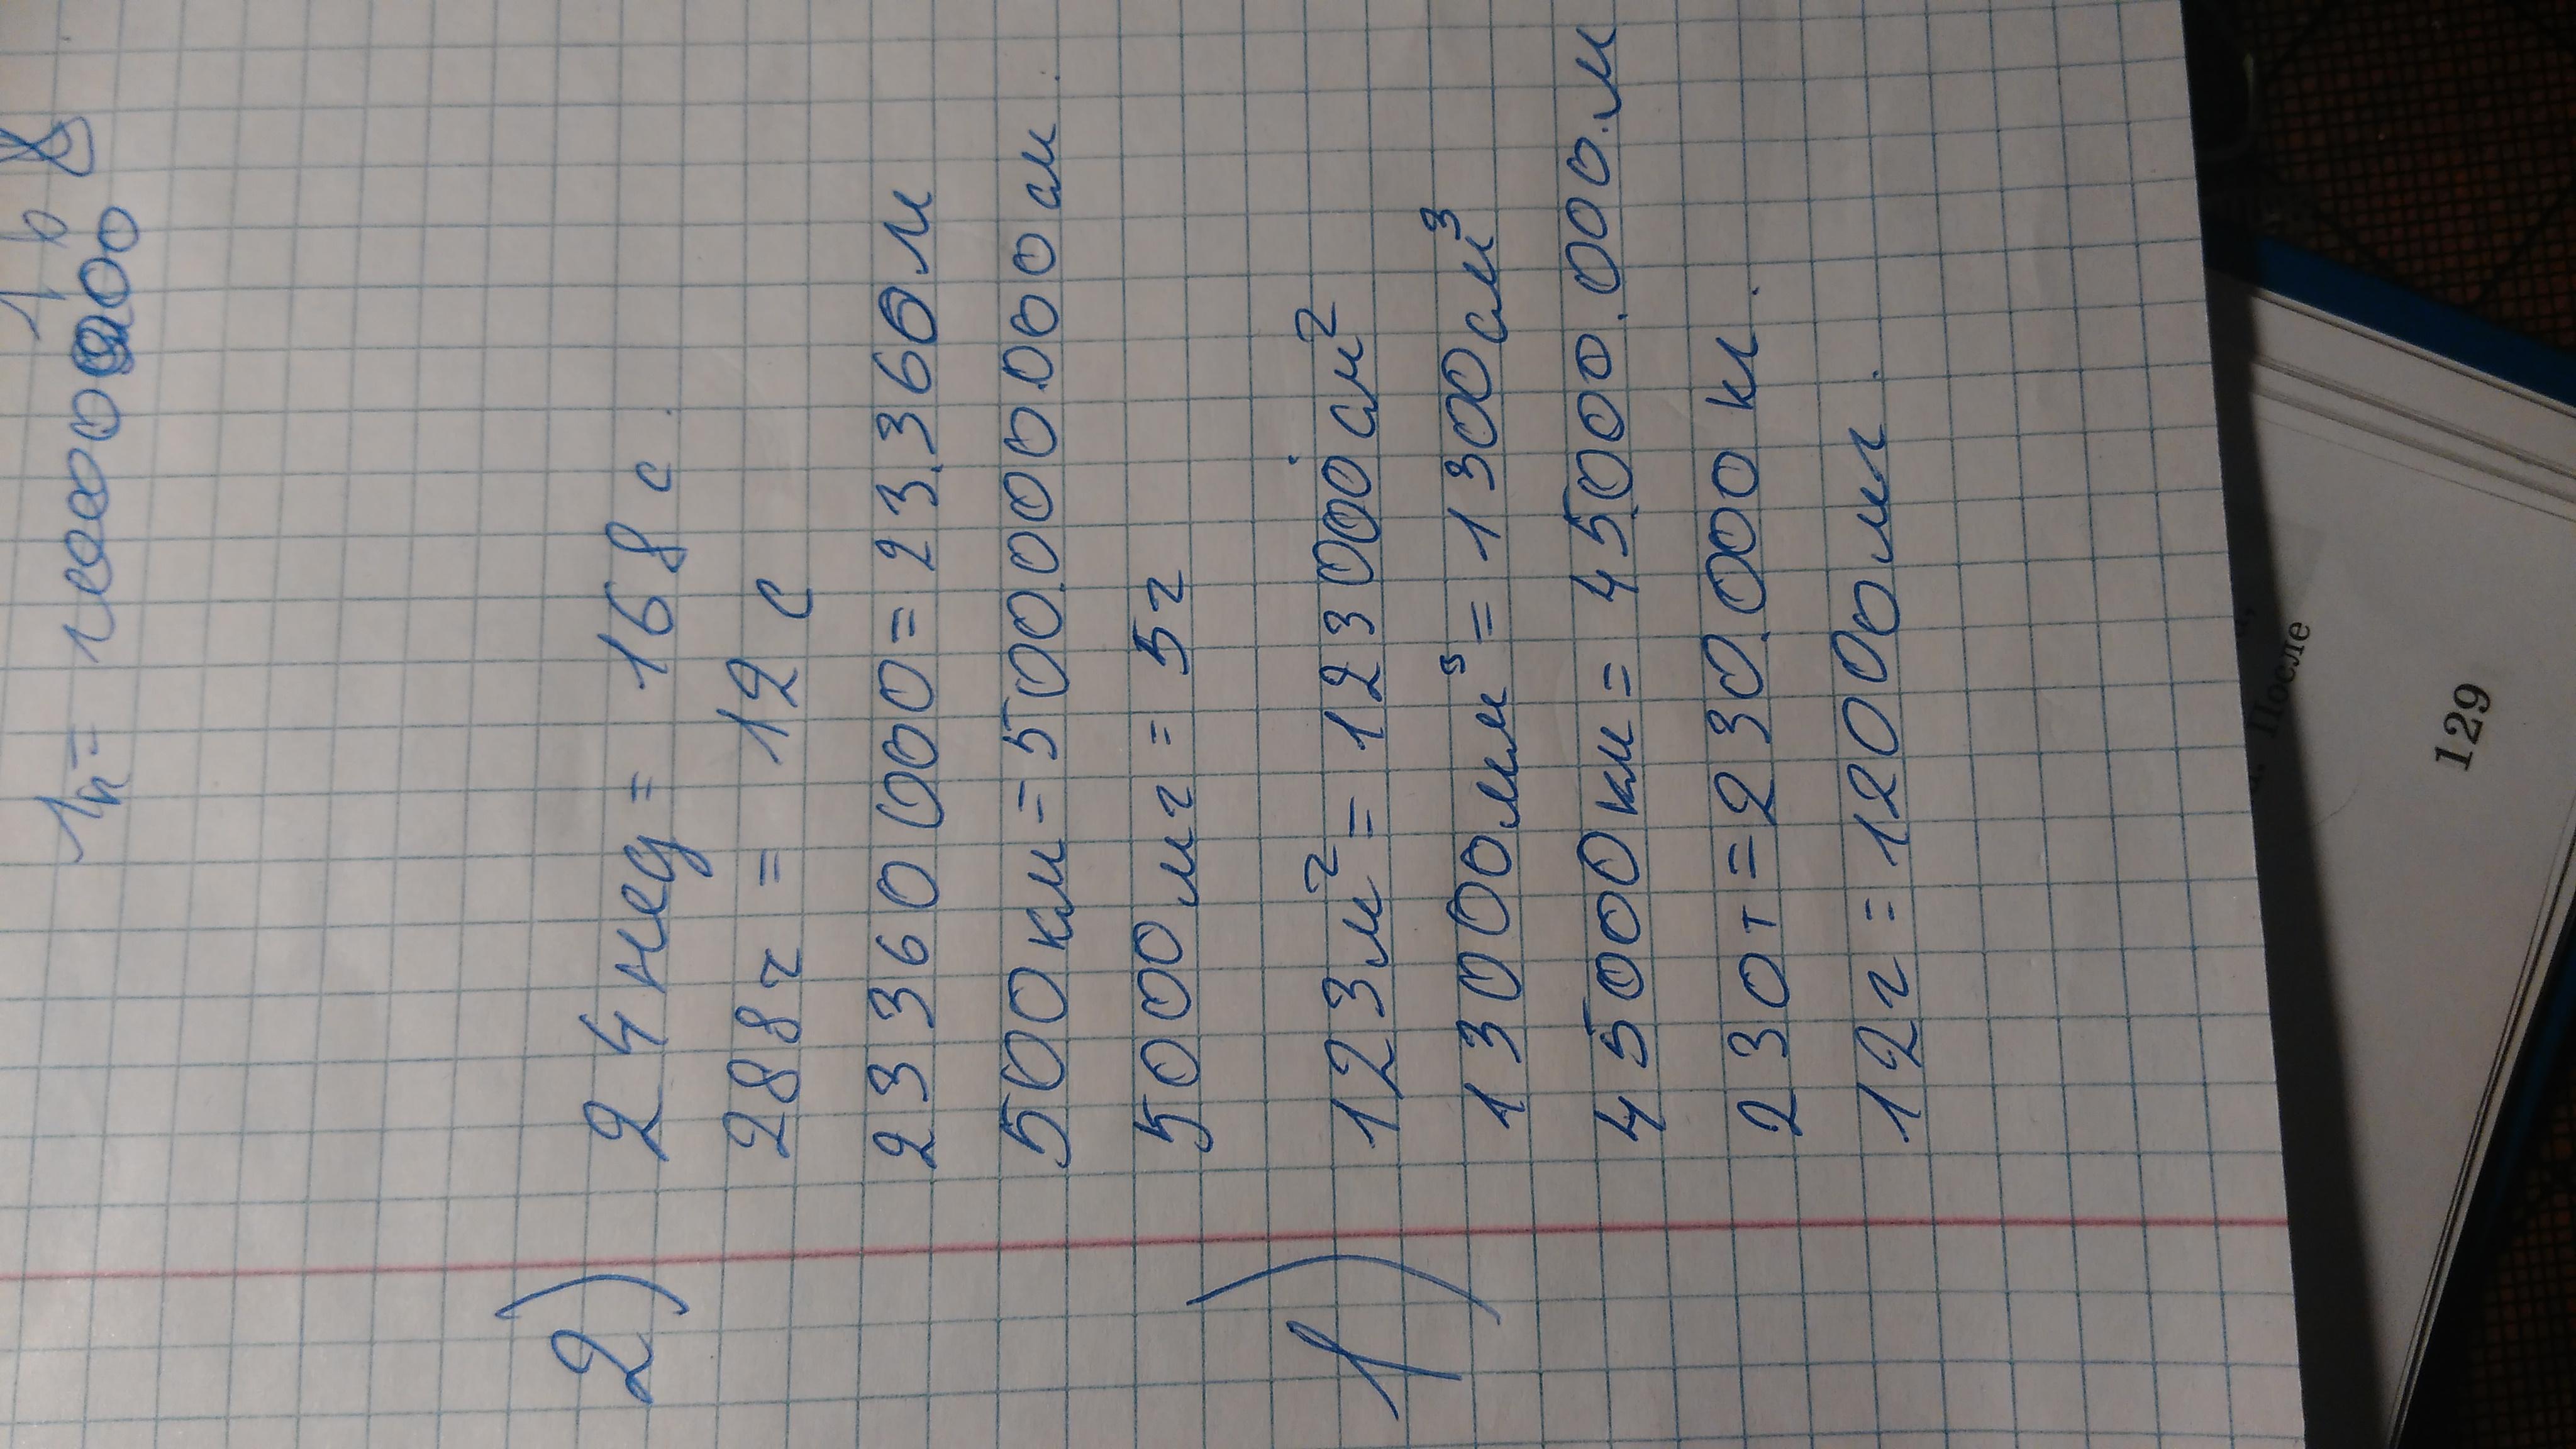 1п =
2) 24 нед = 168 с.
288 ч = 12 с
23360 000 = 23.360 м
500 км = 500.000 00.00 0 см
5000 мг = 5 г
1) 123 м² = 1230000 см²
13000 мм³ = 1300 см³
4500 км = 4500.000.м
230 т = 230.000 кг.
12 г = 1200 мг.
После
129